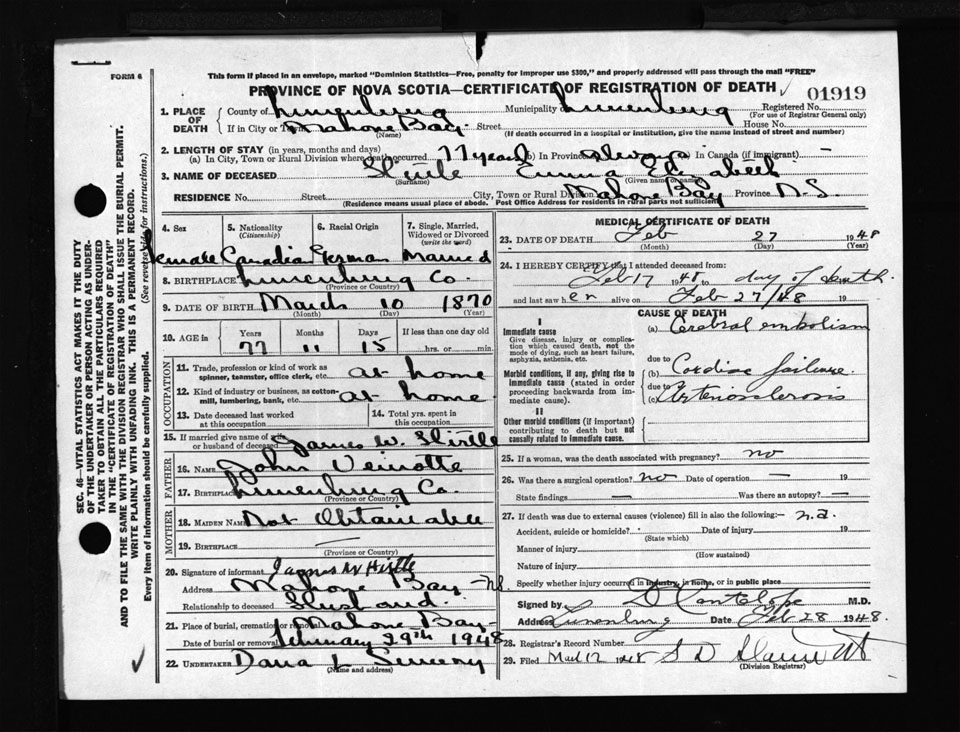 FORM 6
This form if placed in an envelope, marked "Dominion Statistics—Free, penalty for improper use $300," and properly addressed will pass through the mail "FREE"
PROVINCE OF NOVA SCOTIA—CERTIFICATE OF REGISTRATION OF DEATH
01919
1. PLACE OF DEATH County of Lunenburg Municipality of Lunenburg Registered No.
(For use of Registrar General only)
If in City or Town Mahone Bay Street House No.
(Name) (If death occurred in a hospital or institution, give the name instead of street and number)
2. LENGTH OF STAY (in years, months and days)
(a) In City, Town or Rural Division where death occurred 77 years (b) In Province always In Canada (if immigrant) —
3. NAME OF DECEASED Hirtle Emma Elizabeth
(Surname) (Given name or names)
RESIDENCE No. Street City, Town or Rural Division Mahone Bay Province N.S.
(Residence means usual place of abode. Post Office Address for residents in rural parts not sufficient)
4. Sex 5. Nationality (Citizenship) 6. Racial Origin 7. Single, Married, Widowed or Divorced (write the word)
Female Canadian German Married
8. BIRTHPLACE Lunenburg Co.
(Province or Country)
9. DATE OF BIRTH March 10 1870
(Month) (Day) (Year)
10. AGE in Years Months Days If less than one day old
77 11 15 hrs. or min.
OCCUPATION
11. Trade, profession or kind of work as spinner, teamster, office clerk, etc. at home
12. Kind of industry or business, as cotton-mill, lumbering, bank, etc. at home
13. Date deceased last worked at this occupation 14. Total yrs. spent in this occupation
15. If married give name of wife or husband of deceased James W. Hirtle
FATHER
16. Name John Veinotte
17. Birthplace Lunenburg Co.
(Province or Country)
MOTHER
18. Maiden Name Not Obtainable
19. Birthplace —
(Province or Country)
20. Signature of informant James W Hirtle
Address Mahone Bay N.S.
Relationship to deceased Husband.
21. Place of burial, cremation or removal Mahone Bay
Date of burial or removal February 29th 1948
22. UNDERTAKER Dana L Sweeny
(Name and address)
MEDICAL CERTIFICATE OF DEATH
23. DATE OF DEATH Feb 27 1948
(Month) (Day) (Year)
24. I HEREBY CERTIFY that I attended deceased from:
Feb 17 1948 to day of death
and last saw her alive on Feb 27/48 19
CAUSE OF DEATH
I
Immediate cause
Give disease, injury or complication which caused death, not the mode of dying, such as heart failure, asphyxia, asthenia, etc.
(a) Cerebral embolism
due to
Morbid conditions, if any, giving rise to immediate cause (stated in order proceeding backwards from immediate cause).
(b) Cardiac failure.
due to
(c) Arteriosclerosis
II
Other morbid conditions (if important) contributing to death but not causally related to immediate cause.
25. If a woman, was the death associated with pregnancy? no
26. Was there a surgical operation? no Date of operation — 19
State findings — Was there an autopsy? —
27. If death was due to external causes (violence) fill in also the following:— n.a.
Accident, suicide or homicide? Date of injury 19
(State which)
Manner of injury
(How sustained)
Nature of injury
Specify whether injury occurred in industry, in home, or in public place
Signed by D Cantelope M.D.
Address Lunenburg Date Feb 28 1948
28. Registrar's Record Number
29. Filed Mar 12 1948
(Division Registrar)
SEC. 46—VITAL STATISTICS ACT MAKES IT THE DUTY
OF THE UNDERTAKER OR PERSON ACTING AS UNDER-
TAKER TO OBTAIN ALL THE PARTICULARS REQUIRED
IN THE "CERTIFICATE OF REGISTRATION OF DEATH"
AND TO FILE THE SAME WITH THE DIVISION REGISTRAR WHO SHALL ISSUE THE BURIAL PERMIT.
WRITE PLAINLY WITH UNFADING INK. THIS IS A PERMANENT RECORD.
Every item of information should be carefully supplied. (See reverse side for instructions.)